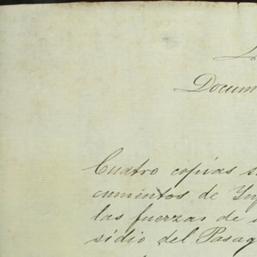 Docum
Cuatro copias s
cumentos de Inf
las fuerzas de
sidio del Pasag